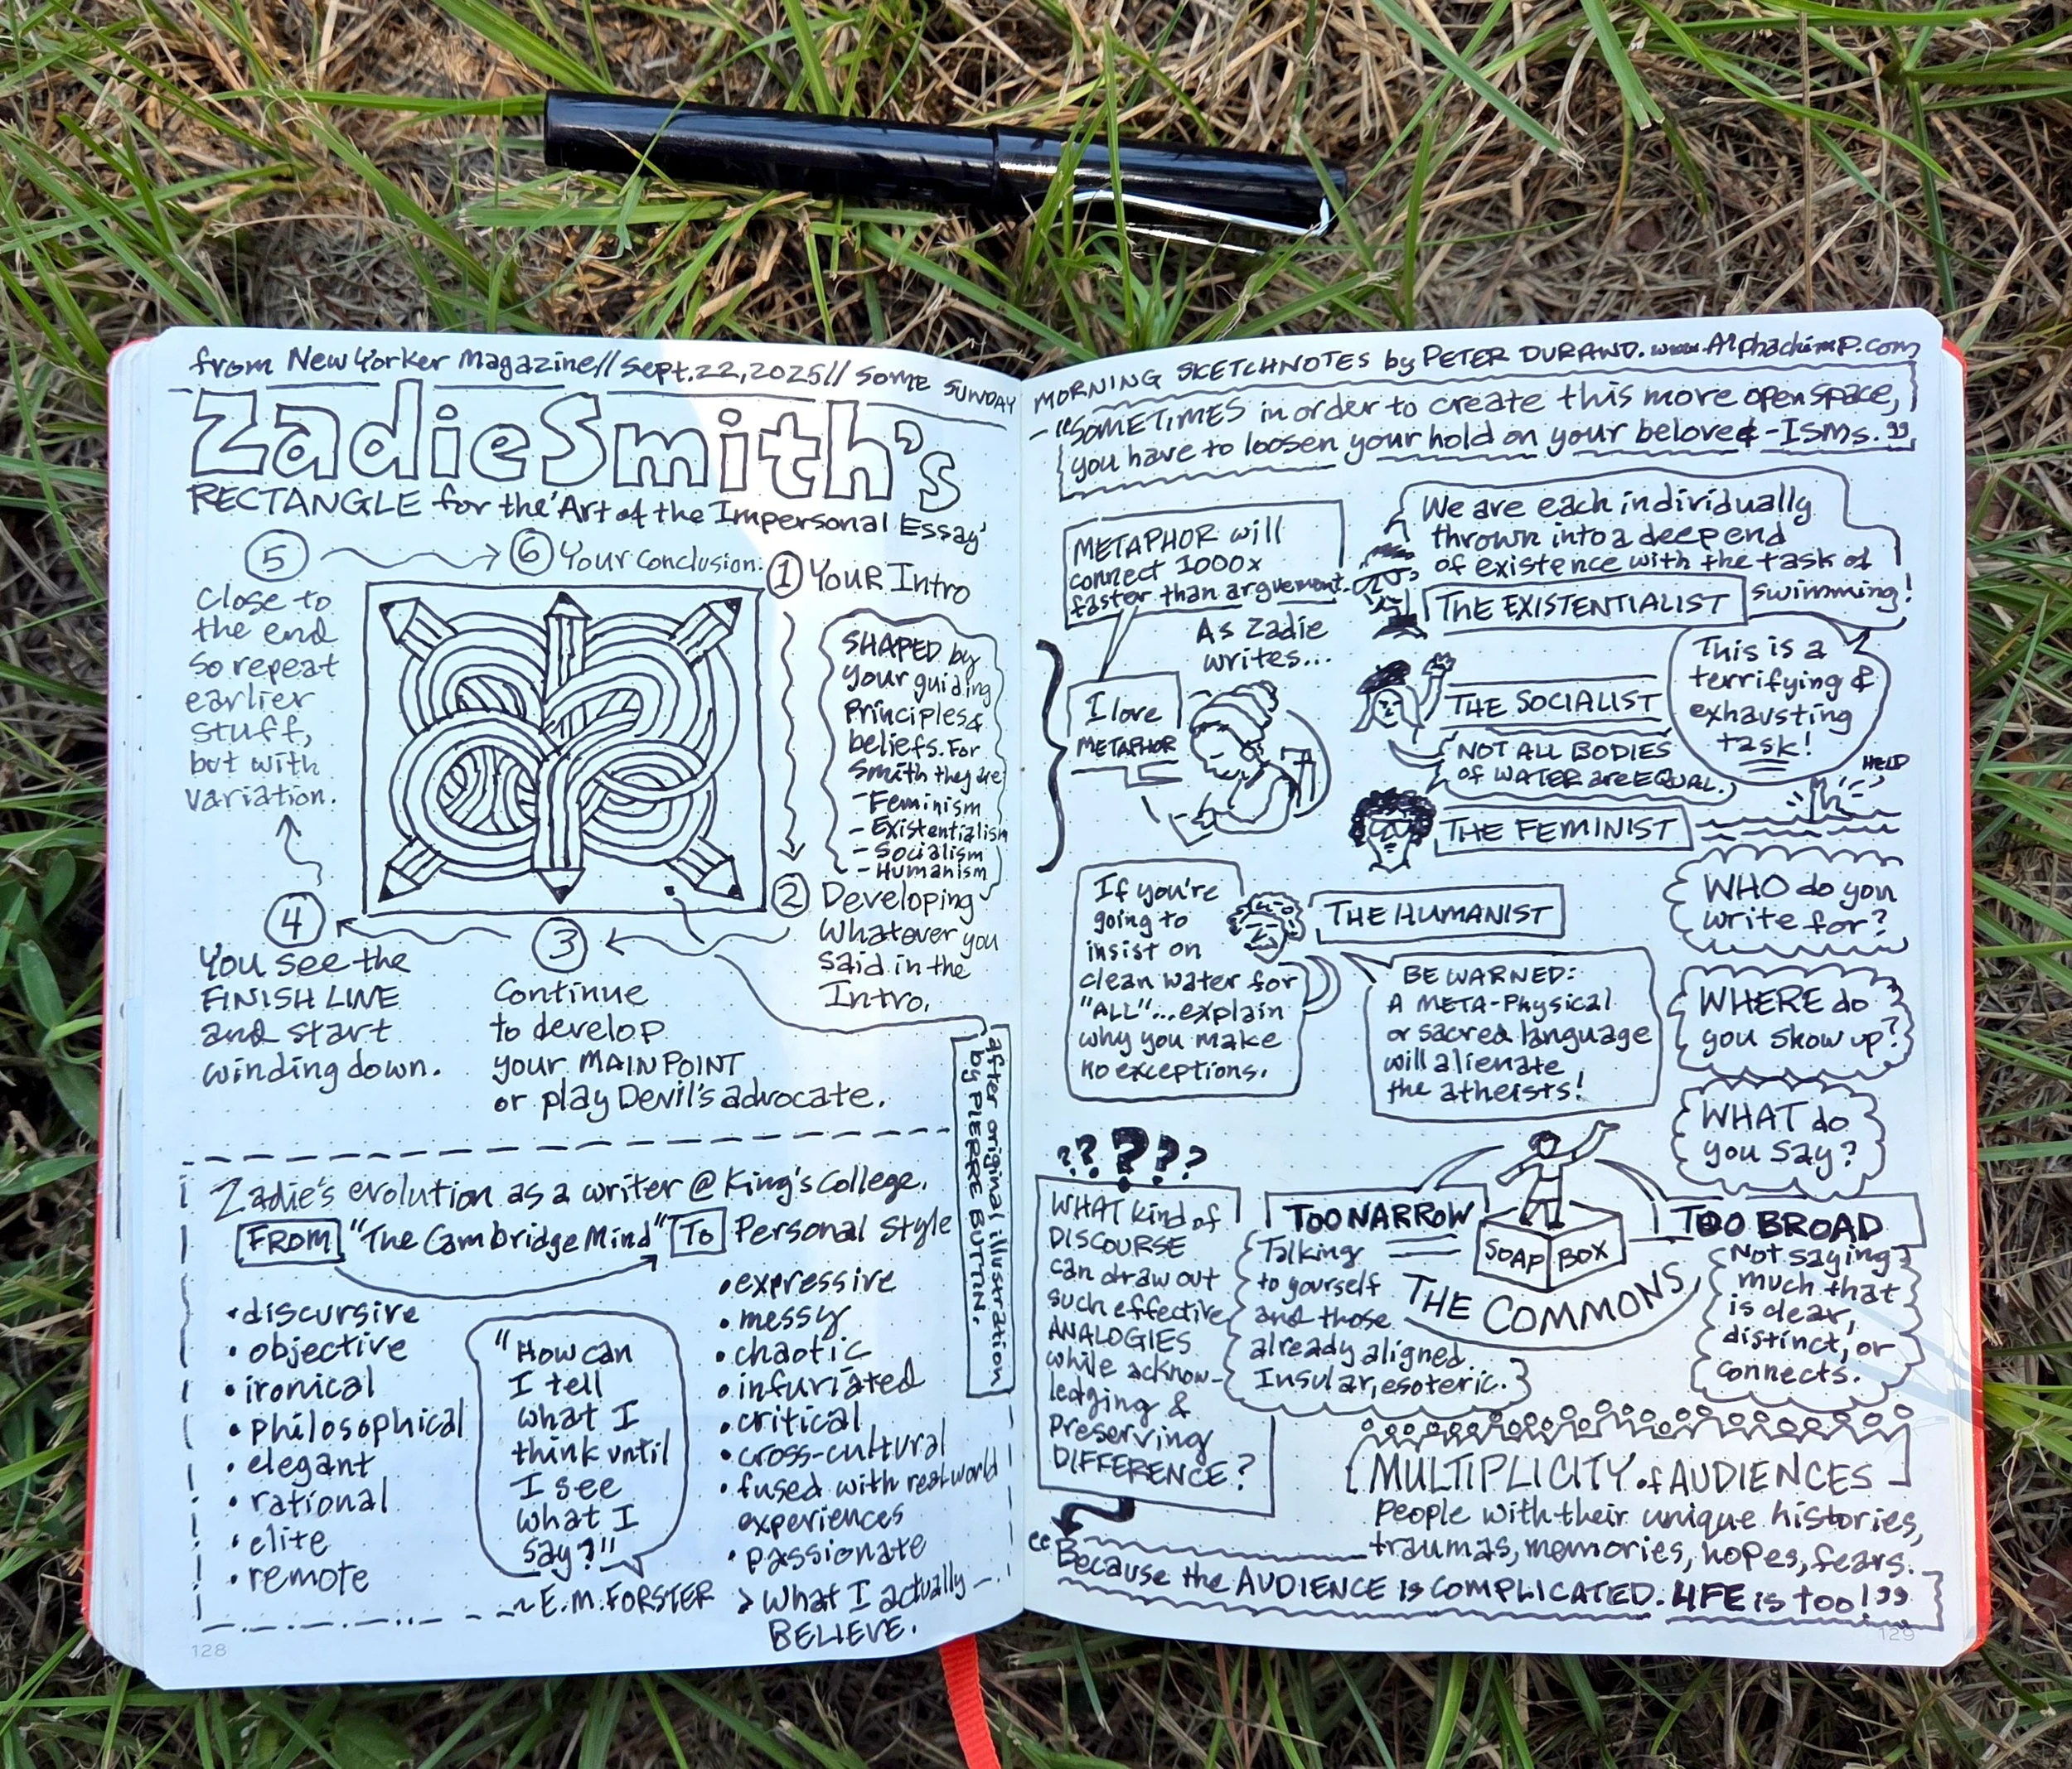 from New Yorker Magazine// Sept. 22, 2025// SOME SUNDAY
Zadie Smith's
RECTANGLE for the 'Art of the Impersonal Essay'
⑤
Close to
the end
so repeat
earlier
stuff,
but with
variation.
⑥ Your Conclusion.
① YOUR Intro
SHAPED by
your guiding
Principles &
beliefs. For
Smith they are
- Feminism
- Existentialism
- Socialism
- Humanism
② Developing
Whatever you
said in the
Intro.
③
Continue
to develop
your MAIN POINT
or play Devil's advocate.
④
You see the
FINISH LINE
and start
winding down.
after original illustration
by PIERRE BUTTIN.
Zadie's evolution as a writer @ King's College.
FROM "The Cambridge Mind" TO Personal Style
• discursive
• objective
• ironical
• philosophical
• elegant
• rational
• elite
• remote
"How can
I tell
what I
think until
I see
what I
say?"
~ E.M. FORSTER
• expressive
• messy
• chaotic
• infuriated
• critical
• cross-cultural
• fused with real world
experiences
• passionate
> What I actually
BELIEVE.
128
MORNING SKETCHNOTES by PETER DURAND. www.Alphachimp.com
"SOMETIMES in order to create this more open space,
you have to loosen your hold on your beloved -Isms."
METAPHOR will
connect 1000x
faster than arguement.
As Zadie
writes...
I love
METAPHOR
We are each individually
thrown into a deep end
of existence with the task of
swimming!
THE EXISTENTIALIST
This is a
terrifying &
exhausting
task!
HELP
THE SOCIALIST
NOT ALL BODIES
of WATER are EQUAL.
THE FEMINIST
If you're
going to
insist on
clean water for
"ALL"... explain
why you make
no exceptions.
THE HUMANIST
BE WARNED:
A META-Physical
or sacred language
will alienate
the atheists!
WHO do you
write for?
WHERE do
you show up?
WHAT do
you say?
?????
WHAT kind of
DISCOURSE
can draw out
such effective
ANALOGIES
while acknow-
ledging &
preserving
DIFFERENCE?
TOO NARROW
Talking
to yourself
and those
already aligned.
Insular, esoteric.
SOAP BOX
THE COMMONS
TOO BROAD
Not saying
much that
is clear,
distinct, or
connects.
MULTIPLICITY of AUDIENCES
People with their unique histories,
traumas, memories, hopes, fears.
"Because the AUDIENCE is COMPLICATED. LIFE is too!"
129